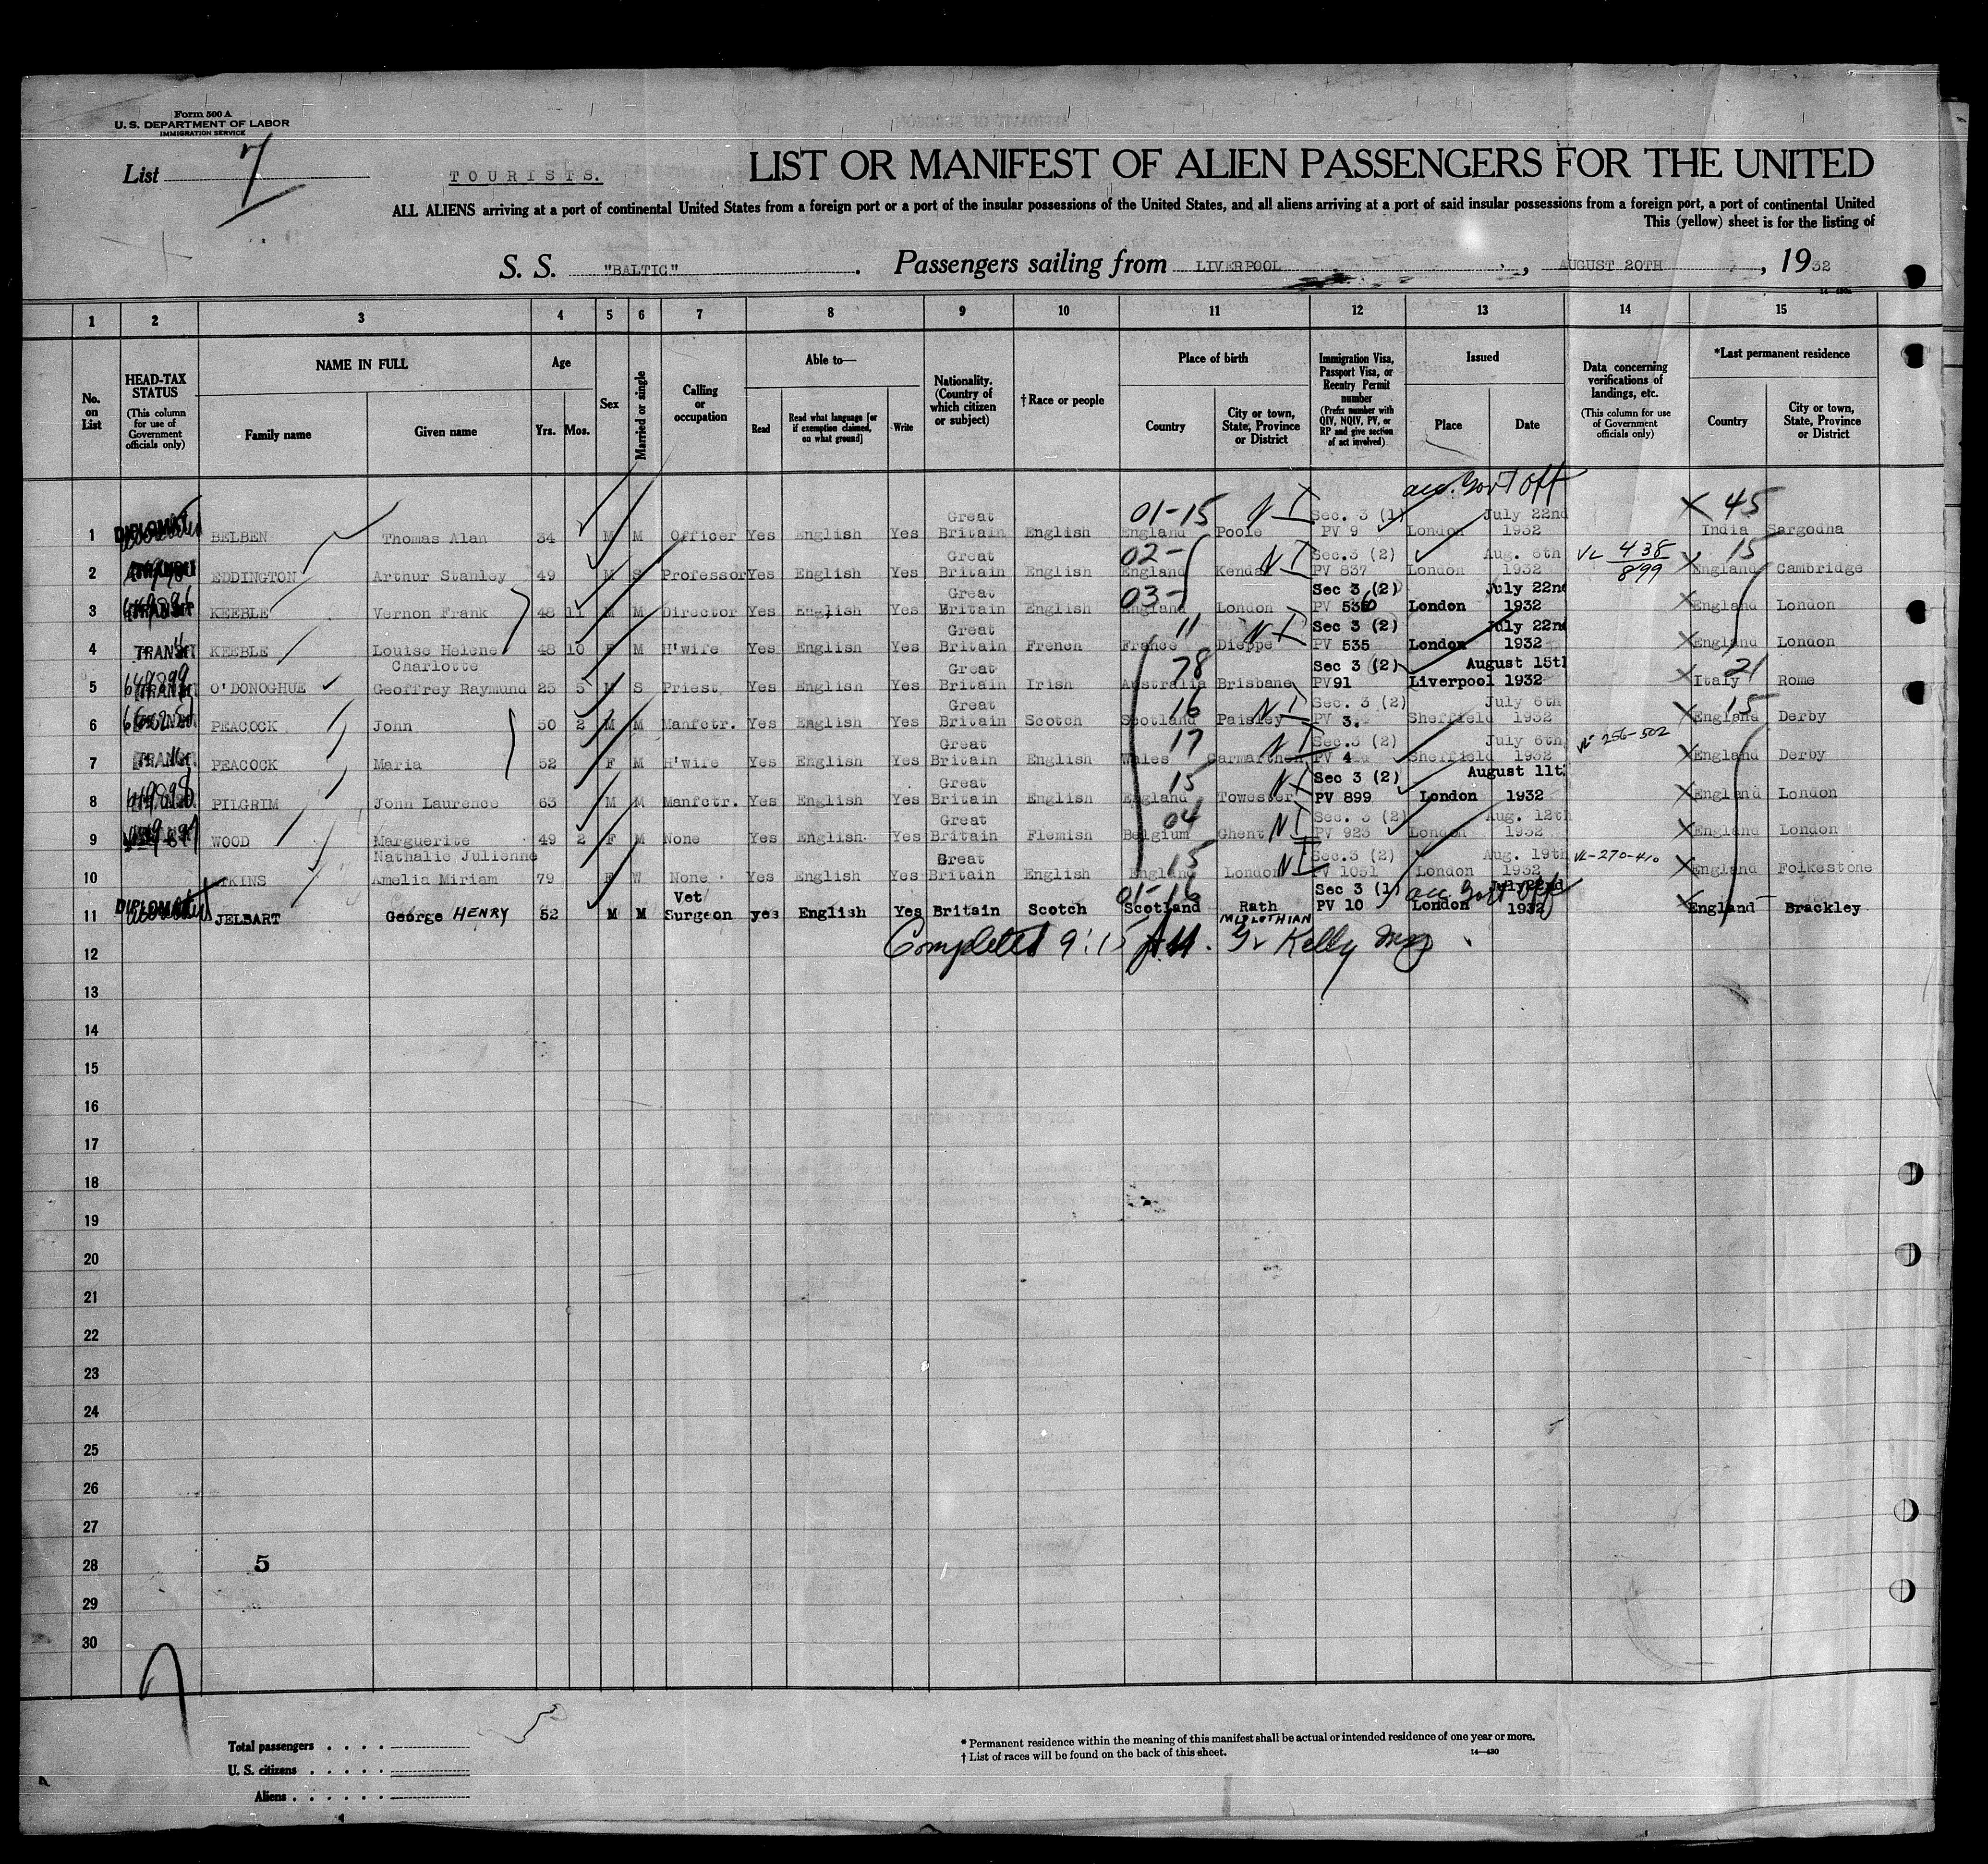 Form 500 A
U. S. DEPARTMENT OF LABOR
IMMIGRATION SERVICE
List 7
TOURISTS.
LIST OR MANIFEST OF ALIEN PASSENGERS FOR THE UNITED
ALL ALIENS arriving at a port of continental United States from a foreign port or a port of the insular possessions of the United States, and all aliens arriving at a port of said insular possessions from a foreign port, a port of continental United
This (yellow) sheet is for the listing of
S. S. "BALTIC" . Passengers sailing from LIVERPOOL , AUGUST 20TH , 1932
1 2 3 4 5 6 7 8 9 10 11 12 13 14 15
No. on List
HEAD-TAX STATUS (This column for use of Government officials only)
NAME IN FULL Family name Given name
Age Yrs. Mos.
Sex
Married or single
Calling or occupation
Able to— Read Read what language [or if exemption claimed, on what ground] Write
Nationality. (Country of which citizen or subject)
†Race or people
Place of birth Country City or town, State, Province or District
Immigration Visa, Passport Visa, or Reentry Permit number (Prefix number with QIV, NQIV, PV, or RP and give section of act involved)
Issued Place Date
Data concerning verifications of landings, etc. (This column for use of Government officials only)
*Last permanent residence Country City or town, State, Province or District
acc. Gov't Off
1 DIPLOMAT BELBEN Thomas Alan 34 M M Officer Yes English Yes Great Britain English 01-15 England Poole NI Sec. 3 (1) PV 9 London July 22nd 1932 X 45 India Sargodha
2 EDDINGTON Arthur Stanley 49 M S Professor Yes English Yes Great Britain English 02- England Kendal NI Sec.3 (2) PV 837 London Aug. 6th 1932 VL 438 899 X 15 England Cambridge
3 TRANSIT KEEBLE Vernon Frank 48 11 M M Director Yes English Yes Great Britain English 03- England London Sec 3 (2) PV 536 London July 22nd 1932 X England London
4 TRANSIT KEEBLE Louise Helene Charlotte 48 10 F M H'wife Yes English Yes Great Britain French 11 France Dieppe NI Sec 3 (2) PV 535 London July 22nd 1932 X England London
5 649899 O'DONOGHUE Geoffrey Raymund 25 5 M S Priest Yes English Yes Great Britain Irish 78 Australia Brisbane Sec 3 (2) PV91 Liverpool August 15th 1932 X 21 Italy Rome
6 PEACOCK John 50 2 M M Manfctr. Yes English Yes Great Britain Scotch 16 Scotland Paisley NI Sec. 3 (2) PV 3. Sheffield July 6th 1932 X 15 England Derby
7 TRANSIT PEACOCK Maria 52 F M H'wife Yes English Yes Great Britain English 17 Wales Carmarthen NI Sec.3 (2) PV 4 Sheffield July 6th 1932 256-502 X England Derby
8 649898 PILGRIM John Laurence 63 M M Manfctr. Yes English Yes Great Britain English 15 England Towester NI Sec 3 (2) PV 899 London August 11th 1932 X England London
9 WOOD Marguerite Nathalie Julienne 49 2 F M None Yes English Yes Great Britain Flemish 04 Belgium Ghent NI Sec. 3 (2) PV 923 London Aug. 12th 1932 X England London
10 ATKINS Amelia Miriam 79 F W None Yes English Yes Great Britain English 15 England London NI Sec.3 (2) PV 1051 London Aug. 19th 1932 VL-270-410 X England Folkestone
11 DIPLOMAT JELBART George HENRY 52 M M Vet Surgeon yes English Yes Britain Scotch 01-16 Scotland Rath MIDLOTHIAN Sec 3 (1) PV 10 London acc Govt Off July 22nd 1932 X England Brackley
12 Completed 9:15 AM. Kelly
13
14
15
16
17
18
19
20
21
22
23
24
25
26
27
28 5
29
30
Total passengers . . . .
U. S. citizens . . . . .
Aliens . . . . . .
* Permanent residence within the meaning of this manifest shall be actual or intended residence of one year or more.
† List of races will be found on the back of this sheet.
14—430